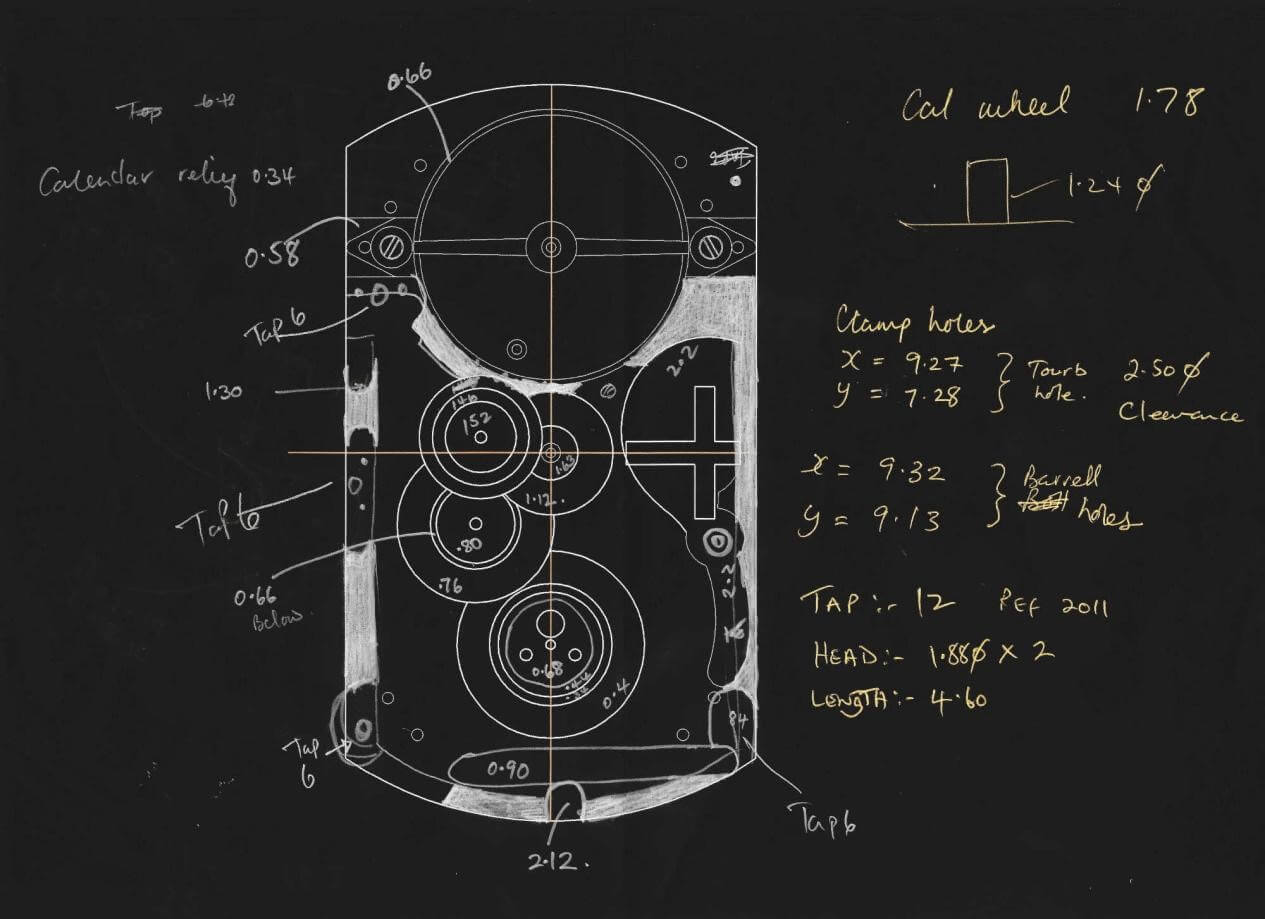 0.66
Calendar relief 0.34
0.58
Tap 6
1.30
Tap 6
0.66
Below
Tap
6
2.2
1.46
152
1.63
1.12.
.80
.76
2.2
0.68
0.4
84
0.90
2.12.
Tap 6
Cal wheel 1.78
1.24 ϕ
Clamp holes
X = 9.27
y = 7.28
Tourb
hole.
2.50 ϕ
Clearance
x = 9.32
y = 9.13
Barrell
holes
TAP:- 12 REF 2011
HEAD:- 1.88ϕ X 2
LENGTH:- 4.60